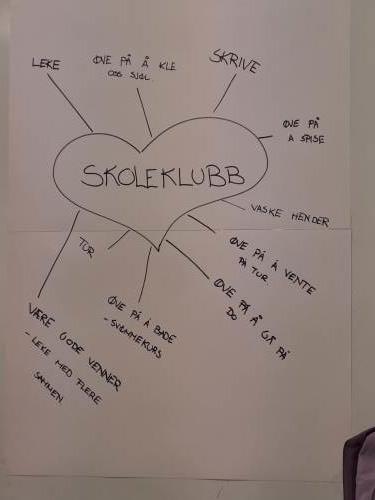 LEKE
ØVE PÅ Å KLE
OSS SJØL
SKRIVE
ØVE PÅ
Å SPISE
SKOLEKLUBB
VASKE HENDER
TUR
ØVE PÅ Å VENTE
PÅ TUR
ØVE PÅ Å GÅ PÅ
DO
ØVE PÅ Å BADE
- SVØMMEKURS
VÆRE GODE VENNER
- LEKE MED FLERE
SAMMEN